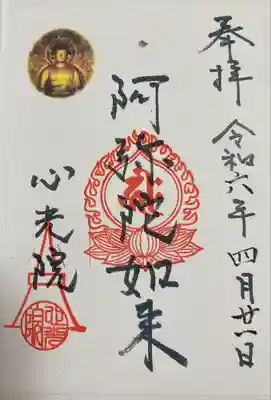 奉拝 令和六年四月廿一日
阿弥陀如来
心光院